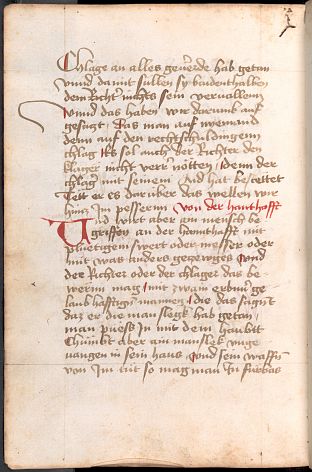 Chlag an alles geuerde hab getan
vnnd damit sullen sy baidenthalben
dem Richter nichts sein veruallenn
vnnd das haben wir darumb auf
gesagt das man auf nyemand
denn auf den rechtschuldigenn
chlag Es sol auch der Richter den
klager nicht verrer nötten denn der
chlag mit seinem Aid hat bestettet
Tett er es darüber das wellen wir
hintz Im pessernn Von der hanthafft
Vnd wirt aber ain mensch be
griffen an der hannthafft mit
pluetigem swert oder messer oder
mit was anders getzewges vnd
der Richter oder der chlager das be
wernn mag mit zwain erbernn ge
laubhafftigen mannen die das sagent
daz er die manslegk hab getan
man puess In mit dem haubtt
Chumbt aber ain manslek vnge
uangen in sein haus vnd sein waffn
von Im tut so mag man In furbas